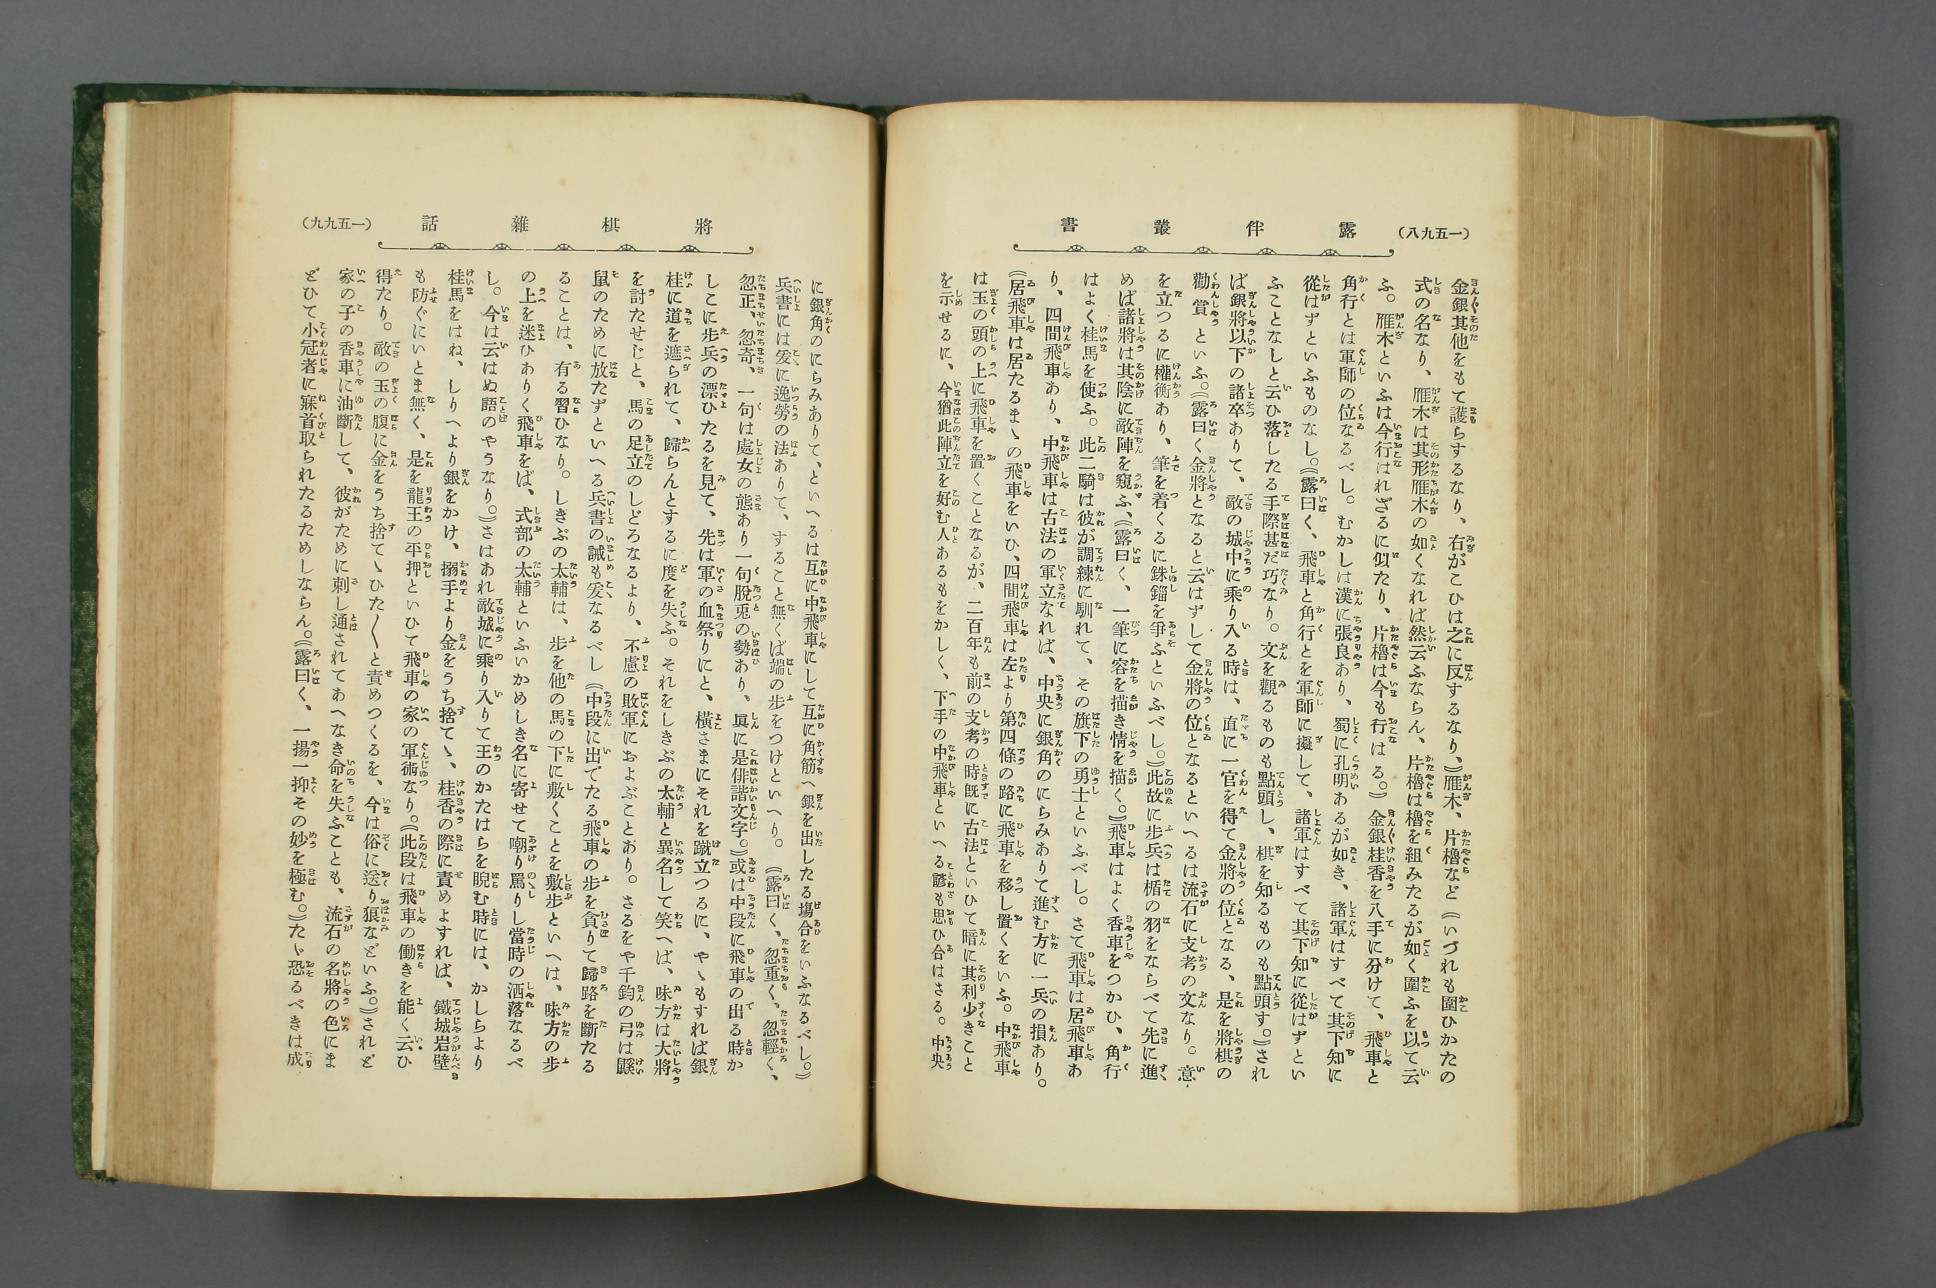 (一五九八)
露伴叢書
金銀其他をもて護らするなり、右がこひは之に反するなり、》雁木、片櫓など《いづれも圍ひかたの
式の名なり、雁木は其形雁木の如くなれば然云ふならん、片櫓は櫓を組みたるが如く圍ふを以て云
ふ。雁木といふは今行はれざるに似たり、片櫓は今も行はる。》金銀桂香を八手に分けて、飛車と
角行とは軍師の位なるべし。むかしは漢に張良あり、蜀に孔明あるが如き、諸軍はすべて其下知に
從はずといふものなし。《露曰く、飛車と角行とを軍師に擬して、諸軍はすべて其下知に從はずとい
ふことなしと云ひ落したる手際甚だ巧なり。文を觀るものも點頭し、棋を知るものも點頭す。》され
ば銀將以下の諸卒ありて、敵の城中に乘り入る時は、直に一官を得て金將の位となる、是を將棋の
勸賞といふ。《露曰く金將となると云はずして金將の位となるといへるは流石に支考の文なり。意
を立つるに權衡あり、筆を着くるに銖錙を爭ふといふべし。》此故に歩兵は楯の羽をならべて先に進
めば諸將は其陰に敵陣を窺ふ、《露曰く、一筆に容を描き情を描く。》飛車はよく香車をつかひ、角行
はよく桂馬を使ふ。此二騎は彼が調練に馴れて、その旗下の勇士といふべし。さて飛車は居飛車あ
り、四間飛車あり、中飛車は古法の軍立なれば、中央に銀角のにらみありて進む方に一兵の損あり。
《居飛車は居たるまゝの飛車をいひ、四間飛車は左より第四條の路に飛車を移し置くをいふ。中飛車
は玉の頭の上に飛車を置くことなるが、二百年も前の支考の時既に古法といひて暗に其利少きこと
を示せるに、今猶此陣立を好む人あるもをかしく、下手の中飛車といへる諺も思ひ合はさる。中央
將棋雜話
(一五九九)
に銀角のにらみありて、といへるは互に中飛車にして互に角筋へ銀を出したる塲合をいふなるべし。》
兵書には爰に逸勞の法ありて、すること無くば端の歩をつけといへり。《露曰く、忽重く、忽輕く、
忽正、忽奇、一句は處女の態あり一句脱兎の勢あり。眞に是俳諧文字。》或は中段に飛車の出る時か
しこに歩兵の漂ひたるを見て、先は軍の血祭りにと、横さまにそれを蹴立つるに、やゝもすれば銀
桂に道を遮られて、歸らんとするに度を失ふ。それをしきぶの太輔と異名して笑へば、味方は大將
を討たせじと、馬の足立のしどろなるより、不慮の敗軍におよぶことあり。さるをや千鈞の弓は鼷
鼠のために放たずといへる兵書の誡も爰なるべし《中段に出でたる飛車の歩を貪りて歸路を斷たる
ることは、有る習ひなり。しきぶの太輔は、歩を他の馬の下に敷くことを敷歩といへは、味方の歩
の上を迷ひありく飛車をば、式部の太輔といふいかめしき名に寄せて嘲り罵りし當時の洒落なるべ
し。今は云はぬ語のやうなり。》さはあれ敵城に乘り入りて王のかたはらを睨む時には、かしらより
桂馬をはね、しりへより銀をかけ、搦手より金をうち捨てゝ、桂香の際に責めよすれば、鐵城岩壁
も防ぐにいとま無く、是を龍王の平押といひて飛車の家の軍術なり。《此段は飛車の働きを能く云ひ
得たり。敵の玉の腹に金をうち捨てゝひた〳〵と責めつくるを、今は俗に送り狼などいふ。》されど
家の子の香車に油斷して、彼がために刺し通されてあへなき命を失ふことも、流石の名將の色にま
どひて小冠者に寐首取られたるためしならん。《露曰く、一揚一抑その妙を極む。》たゞ恐るべきは成